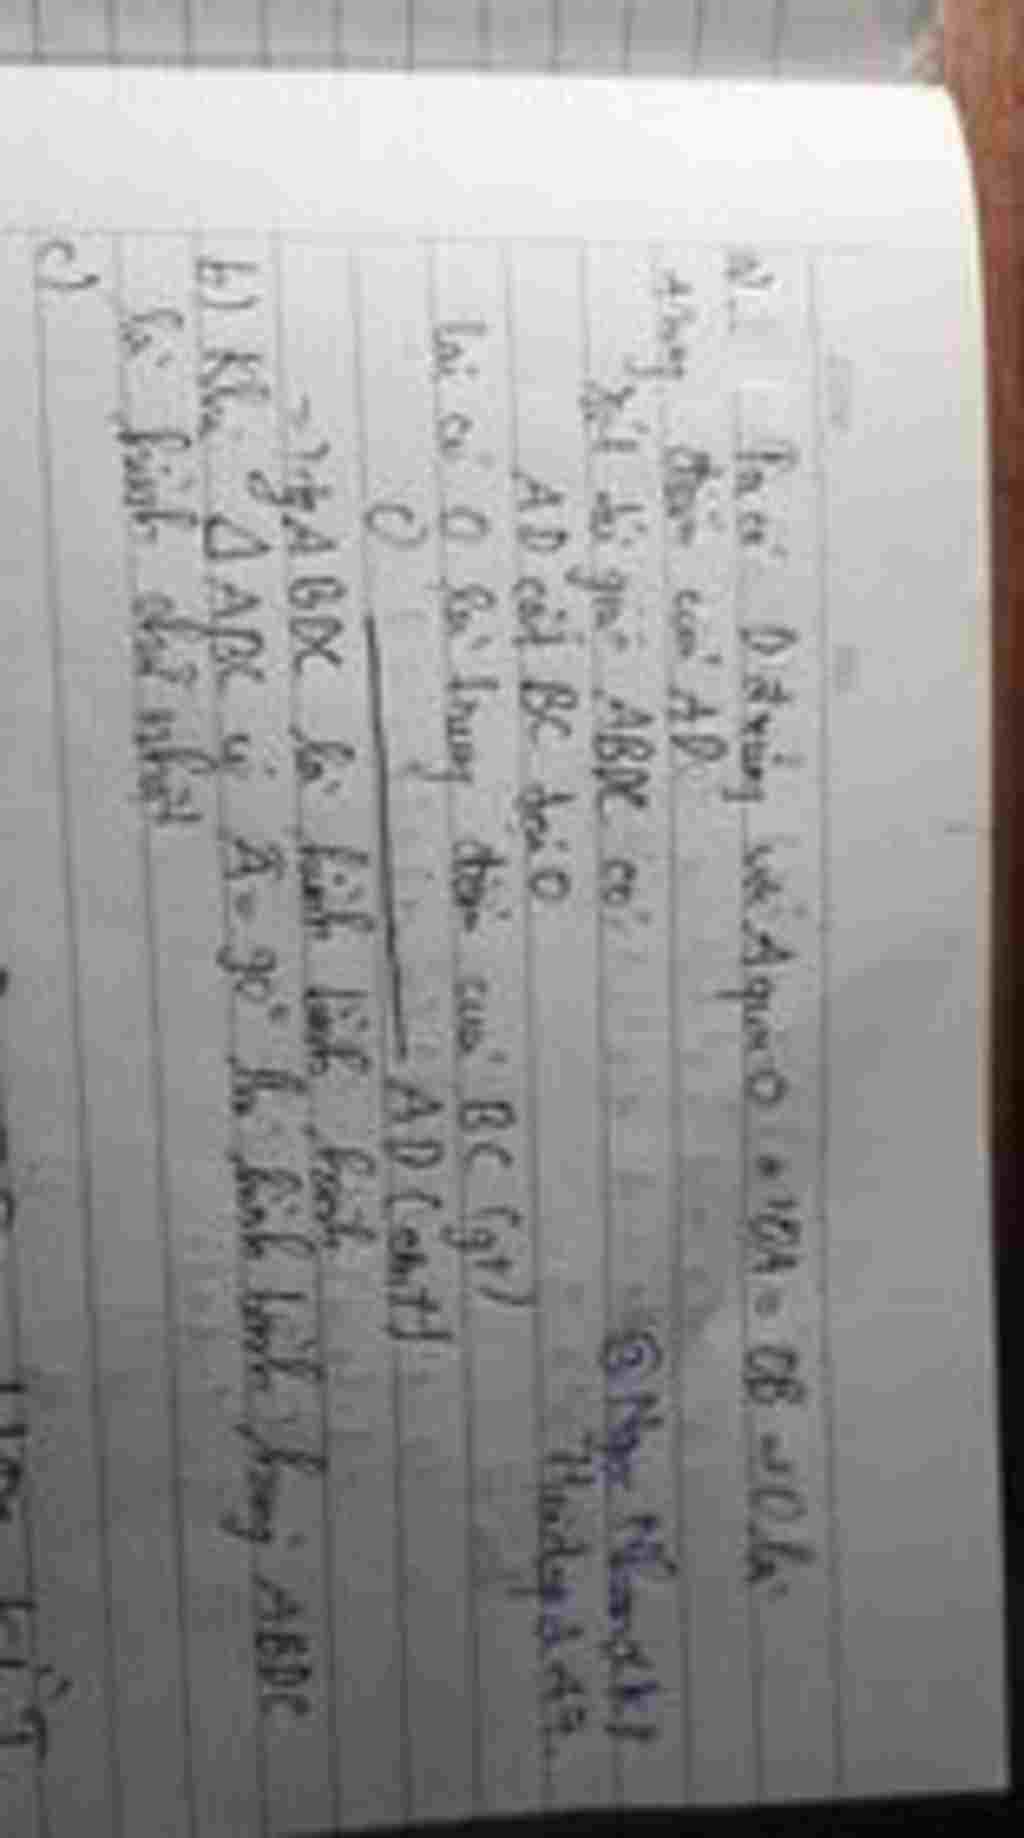 a) Ta có D đ xứng với A qua O => OA = OB => O là
trung điểm của AD
Xét tứ giác ABDC có:
AD cắt BC tại O
lại có O là trung điểm của BC (gt)
O AD (cmt)
=> tg ABDC là hình bình hành
b) Khi Δ ABC có Â = 90° thì hình bình hành ABDC
là hình chữ nhật
c)